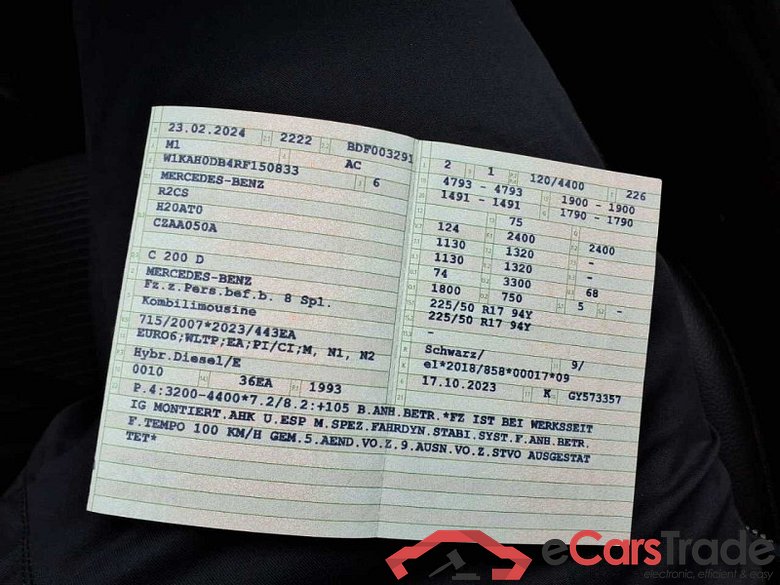 23.02.2024 2222 BDF003291
M1 AC
W1KAH0DB4RF150833 6
MERCEDES-BENZ
R2CS
H20AT0
CZAA050A
C 200 D
MERCEDES-BENZ
Fz.z.Pers.bef.b. 8 Spl.
Kombilimousine
715/2007*2023/443EA
EURO6;WLTP;EA;PI/CI;M, N1, N2
Hybr.Diesel/E
0010 36EA 1993
2 1 120/4400 226
4793 - 4793 1900 - 1900
1491 - 1491 1790 - 1790
75
124 2400 2400
1130 1320 -
1130 1320 -
74 3300 68
1800 750 5 -
225/50 R17 94Y
225/50 R17 94Y
-
Schwarz/ 9/
e1*2018/858*00017*09
17.10.2023 K GY573357
P.4:3200-4400*7.2/8.2:+105 B.ANH.BETR.*FZ IST BEI WERKSSEIT
IG MONTIERT.AHK U.ESP M.SPEZ.FAHRDYN.STABI.SYST.F.ANH.BETR.
F.TEMPO 100 KM/H GEM.5.AEND.VO.Z.9.AUSN.VO.Z.STVO AUSGESTAT
TET*
eCarsTrade
electronic, efficient & easy